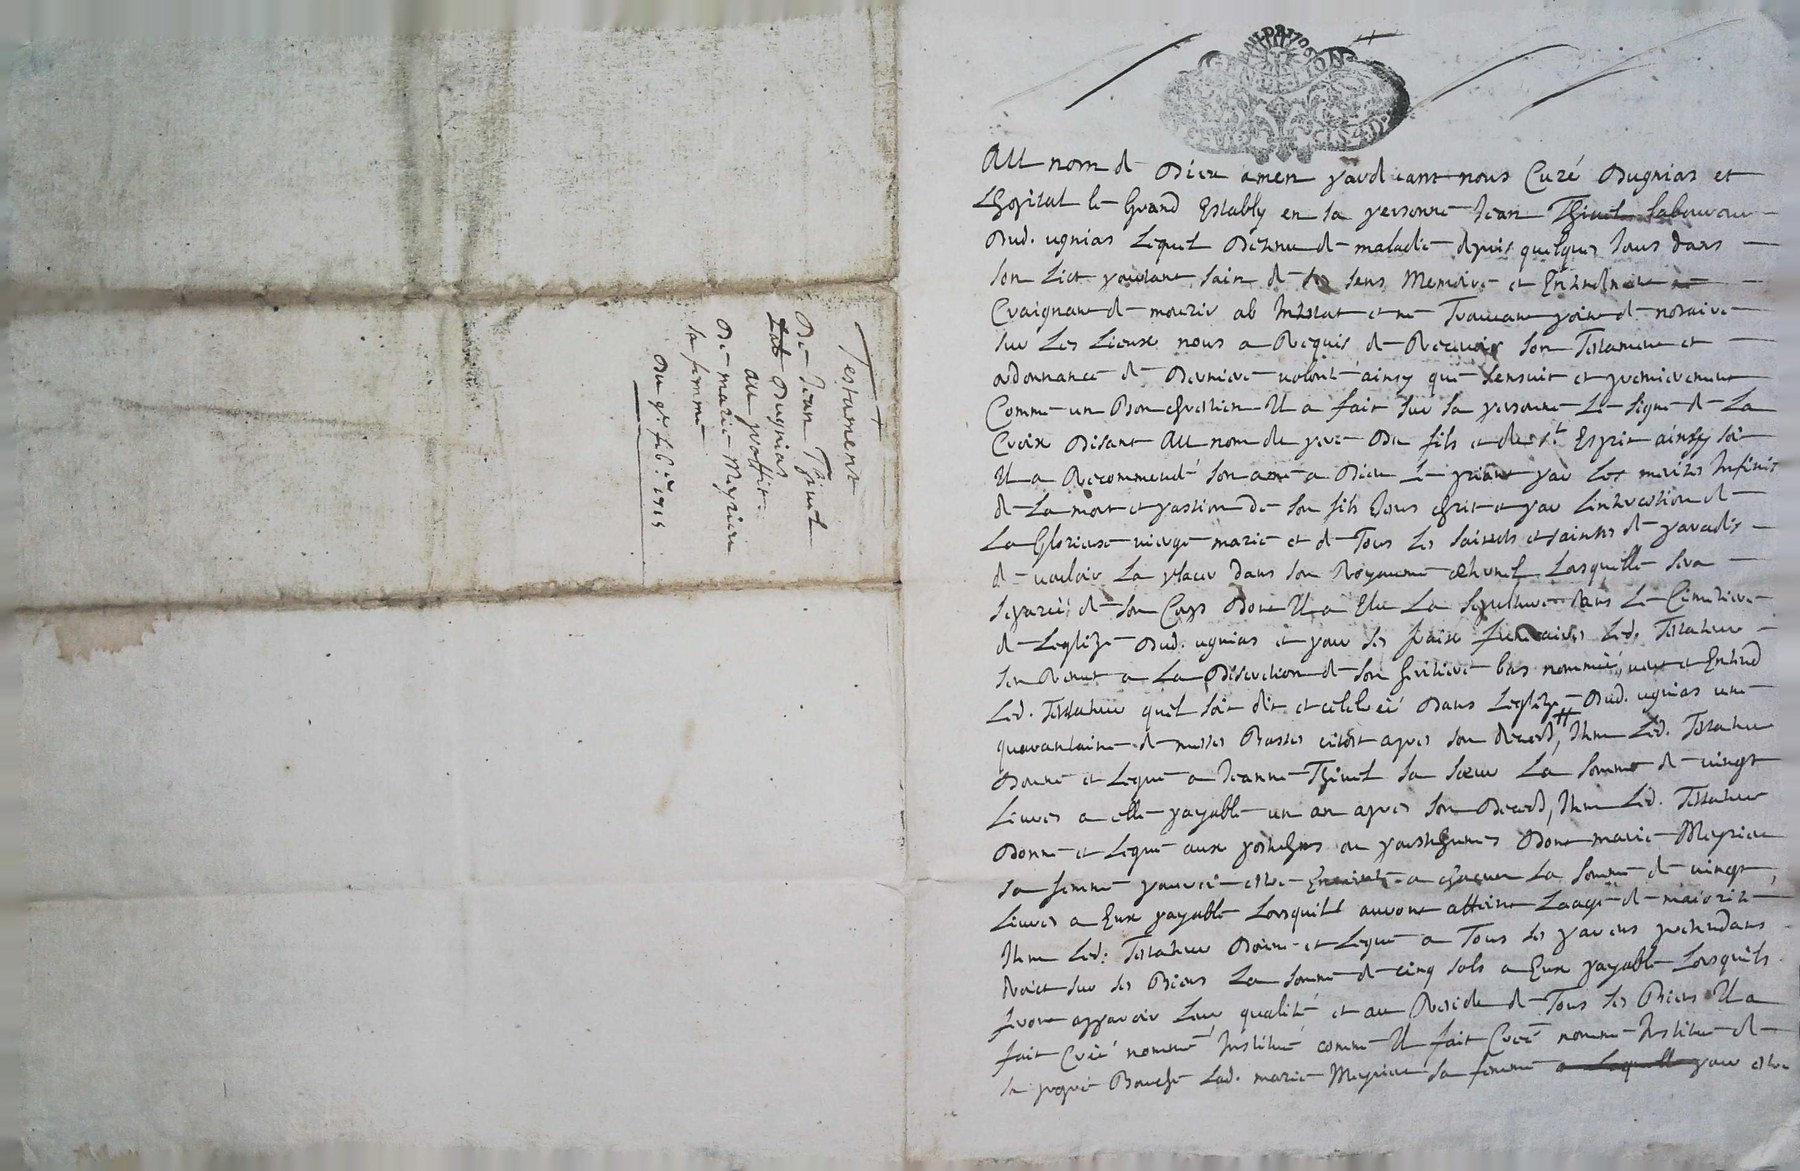 Testament
De Jean Thinet
Lab. Dugnias
au proffit
De marie Meyrieu
sa femme
Du 9e feb.er 1715
GENERATION
Au nom de Dieu amen pardevant nous Curé Dugnias et
Lhopital le Grand Estably en sa personne Jean Thinet laboureur
Dud. ugnias lequel Detenu de maladie depuis quelques Jours dans
son Lict pourtant sain de ses sens Memoire et Entendement
Craignant de mourir ab Intestat et ne Trouvant point de notaire
sur Les Lieux nous a Requis de Recevoir son Testament et
ordonnance de Derniere volonté ainsy que sensuit et premierement
Comme un Bon chrestien Il a fait sur sa personne Le signe de La
Croix Disant Au nom du pere Du fils et du st Esprit ainsy soit
Il a Recommendé son ame a Dieu Le priant par Les merites Infinis
de La mort et passion de son fils Jesus christ et par Lintercession de
La Glorieuse vierge marie et de Tous les saincts et saintes de paradis
de vouloir La placer dans son Royaume eternel Lorsquelle sera
separée de son Corps Dont Il a Elu La sepulture dans Le Cimetiere
de Leglize Dud. ugnias et pour ses fraix funeraires Led. Testateur
sen Remet a La Discretion de son heritiere bas nommée, veut et Entend
Led. Testateur quil soit dit et celebré Dans Leglize Dud. ugnias une
quarantaine de messes Basses citost apres son decedz, Item Led. Testateur
Donne et Legue a Jeanne Thinet sa soeur La somme de vingt
Livres a elle payable un an apres son Decedz, Item Led. Testateur
Donne et Legue aux posthumes ou posthumes Dont marie Meyrieu
sa femme pourroit estre Enceinte a chacun La somme de vingt
Livres a Eux payable Lorsquils auront atteint Laage de majorité
Item Led. Testateur Donne et Legue a Tous ses parens pretendans
droict sur ses Biens La somme de cinq sols a Eux payable Lorsquils
feront apparoir Leur qualité et au Reside de Tous ses Biens Il a
fait Créé nommé Institué comme Il fait Créé nomme Institue de
sa propre Bouche Lad. marie Meyrieu sa femme a Laquelle pour estre